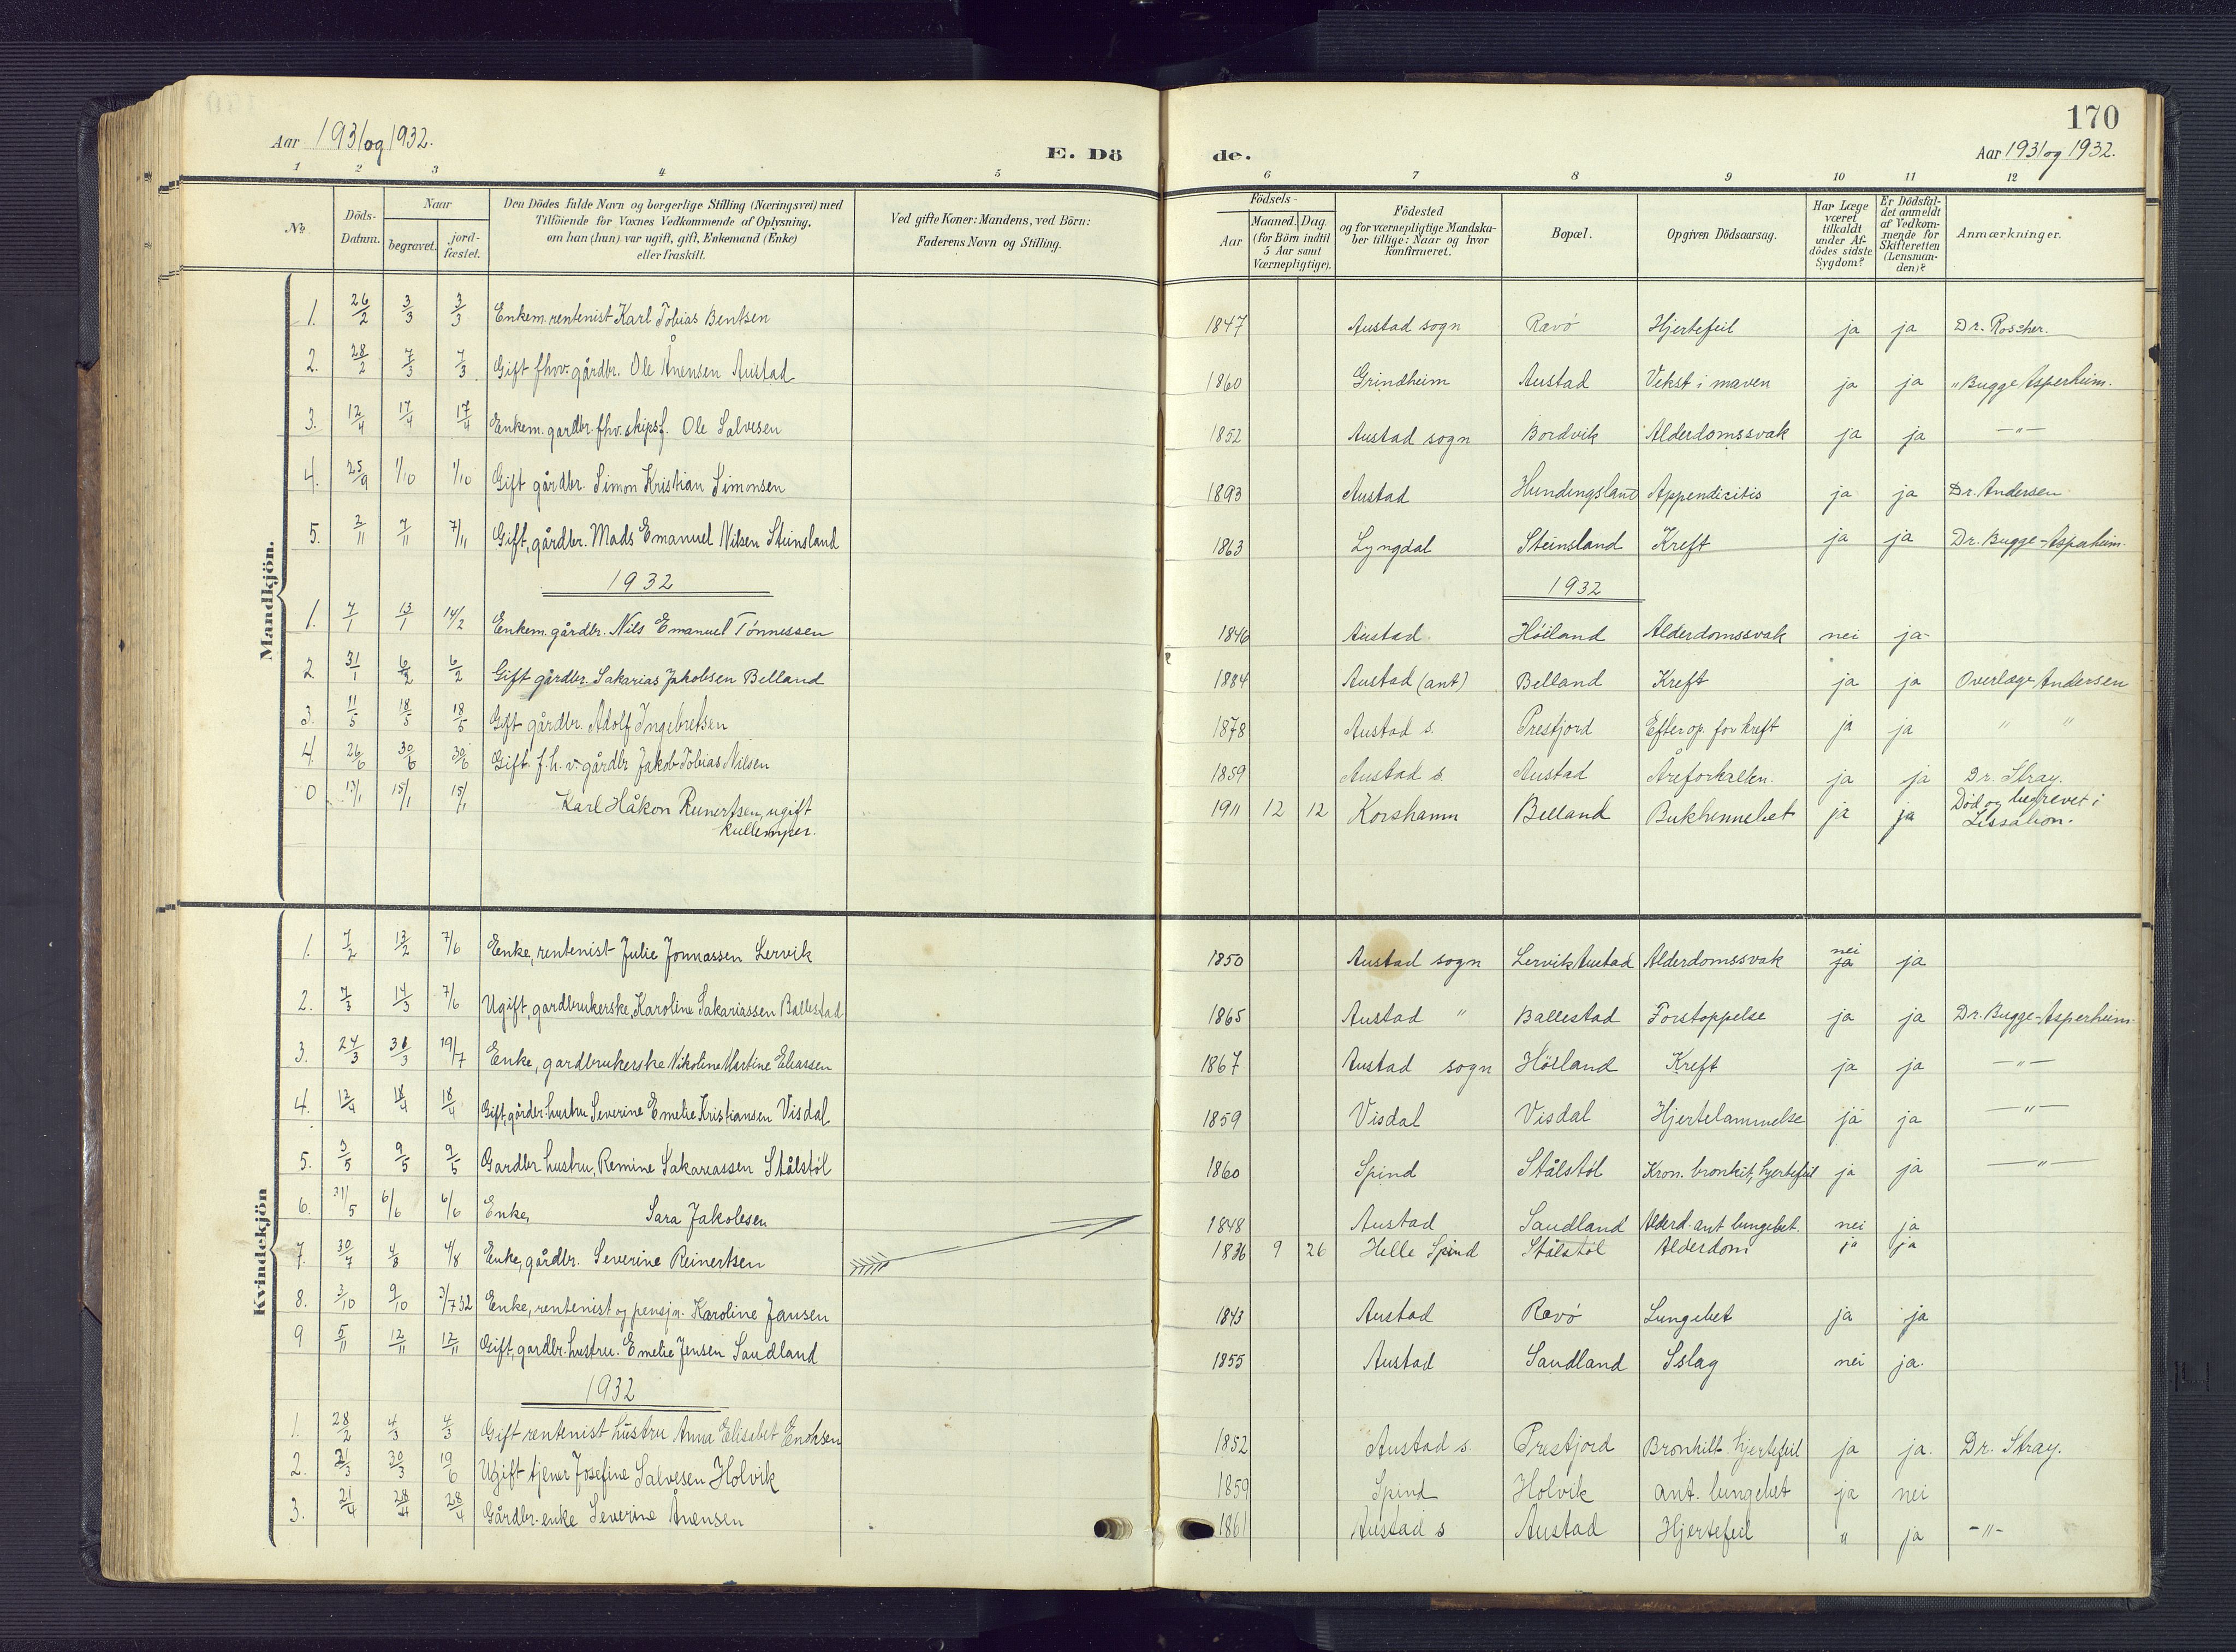 170
Aar 1931 og 1932.
E. Dö
de.
Aar 1931 og 1932.
1 2 3 4 5 6 7 8 9 10 11 12
No.
Döds-
Datum.
Naar
begravet.
jord-
fæstet.
Den Dödes fulde Navn og borgerlige Stilling (Næringsvei) med
Tilföiende for Voxnes Vedkommende af Oplysning,
om han (hun) var ugift, gift, Enkemand (Enke)
eller fraskilt.
Ved gifte Koner: Mandens, ved Börn:
Faderens Navn og Stilling.
Födsels-
Aar
Maaned. Dag.
(for Börn indtil
5 Aar samt
Værnepligtige).
Födested
og for værnepligtige Mandska-
ber tillige: Naar og hvor
konfirmeret.
Bopæl.
Opgiven Dödsaarsag.
Har Læge
været
tilkaldt
under Af-
dödes sidste
Sygdom?
Er Dödsfal-
det anmeldt
af Vedkom-
mende for
Skifteretten
(Lensman-
den)?
Anmærkninger.
Mandkjön.
1. 26/2 3/3 3/3 Enkem. rentenist Karl Tobias Bentsen 1847 Austad sogn Ravö Hjertefeil ja ja Dr. Roscher.
2. 28/2 7/3 7/3 Gift fhvv. gårdbr. Ole Ånensen Austad 1860 Grindheim Austad Vekst i maven ja ja " Bugge Asperheim.
3. 12/4 17/4 17/4 Enkem. gardbr. fhv. skipsf. Ole Salvesen 1852 Austad sogn Bordvik Alderdomssvak ja ja —"—
4. 25/9 1/10 1/10 Gift gårdbr. Simon Kristian Simonsen 1893 Austad Hundingsland Appendicitis ja ja Dr. Andersen
5. 2/11 7/11 7/11 Gift, gårdbr. Mads Emanuel Nilsen Steinsland 1863 Lyngdal Steinsland Kreft ja ja Dr. Bugge-Asperheim.
1932 1932
1. 7/1 13/1 14/2 Enkem. gårdbr. Nils Emanuel Tönnessen 1846 Austad Höiland Alderdomssvak nei ja
2 31/1 6/2 6/2 Gift gårdbr. Sakarias Jakobsen Belland 1884 Austad (ant) Belland Kreft ja ja Overlæge Andersen
3. 11/5 18/5 18/5 Gift gårdbr. Adolf Ingebretsen 1878 Austad s. Prestjord Efter op. for kreft ja ja " "
4. 26/6 30/6 30/6 Gift. f.h.v. gårdbr Jakob Tobias Nilsen 1859 Austad s. Austad Åreforkalkn. ja ja Dr. Stray.
0 13/1 15/1 15/1 Karl Håkon Reinertsen, ugift 1911 12 12 Korshamn Belland Bukhinnebet ja ja Död og begrevet i
kullemper. Lissabon.
Kvindekjön
1. 7/2 13/2 7/6 Enke, rentenist Julie Jonnassen Lervik 1850 Austad sogn Lervik Austad Alderdomssvak nei ja ja
2. 7/3 14/3 7/6 Ugift, gardbrukerske, Karoline Sakariassen Ballestad 1865 Austad " Ballestad Forstoppelse ja ja Dr. Bugge-Asperheim
3. 24/3 31/3 19/7 Enke, gardbrukerske Nikoline Martine Eliassen 1867 Austad sogn Höiland Kreft ja ja —"—
4. 12/4 18/4 18/4 Gift, gårdbr. hustru Severine Emelie Kristiansen Visdal 1859 Visdal Visdal Hjertelammelse ja ja —"—
5. 3/5 9/5 9/5 Gardbr hustru, Remine Sakariassen Stålstöl 1860 Spind Stålstöl Kron. bronkit, hjertefeil ja ja —"—
6. 31/5 6/6 6/6 Enke, Sara Jakobsen 1848 Austad Saudland Alderd. ant lungebet. nei ja
7. 30/7 4/8 4/8 Enke, gårdbr. Severine Reinertsen 1836 9 26 Helle Spind Stålstöl Alderdom ja ja
8. 3/10 9/10 3/7 32 Enke, rentenist og pensjn. Karoline Jansen 1843 Austad Ravö Lungebet ja ja
9 5/11 12/11 12/11 Gift, gardbr. hustru. Emelie Jensen Saudland 1855 Austad Saudland Sslag nei ja.
1932
1. 28/2 4/3 4/3 Gift rentenist hustru Anna Elisabet Enoksen 1852 Austad s. Prestjord Bronkitt. hjertefeil ja ja. Dr. Stray.
2. 21/3 30/3 19/6 Ugift tjener Josefine Salvesen Holvik 1859 Spind Holvik ant. lungebet ja nei
3. 21/4 28/4 28/4 Gårdbr. enke Severine Ånensen 1861 Austad s Austad Hjertefeil " ja —"—